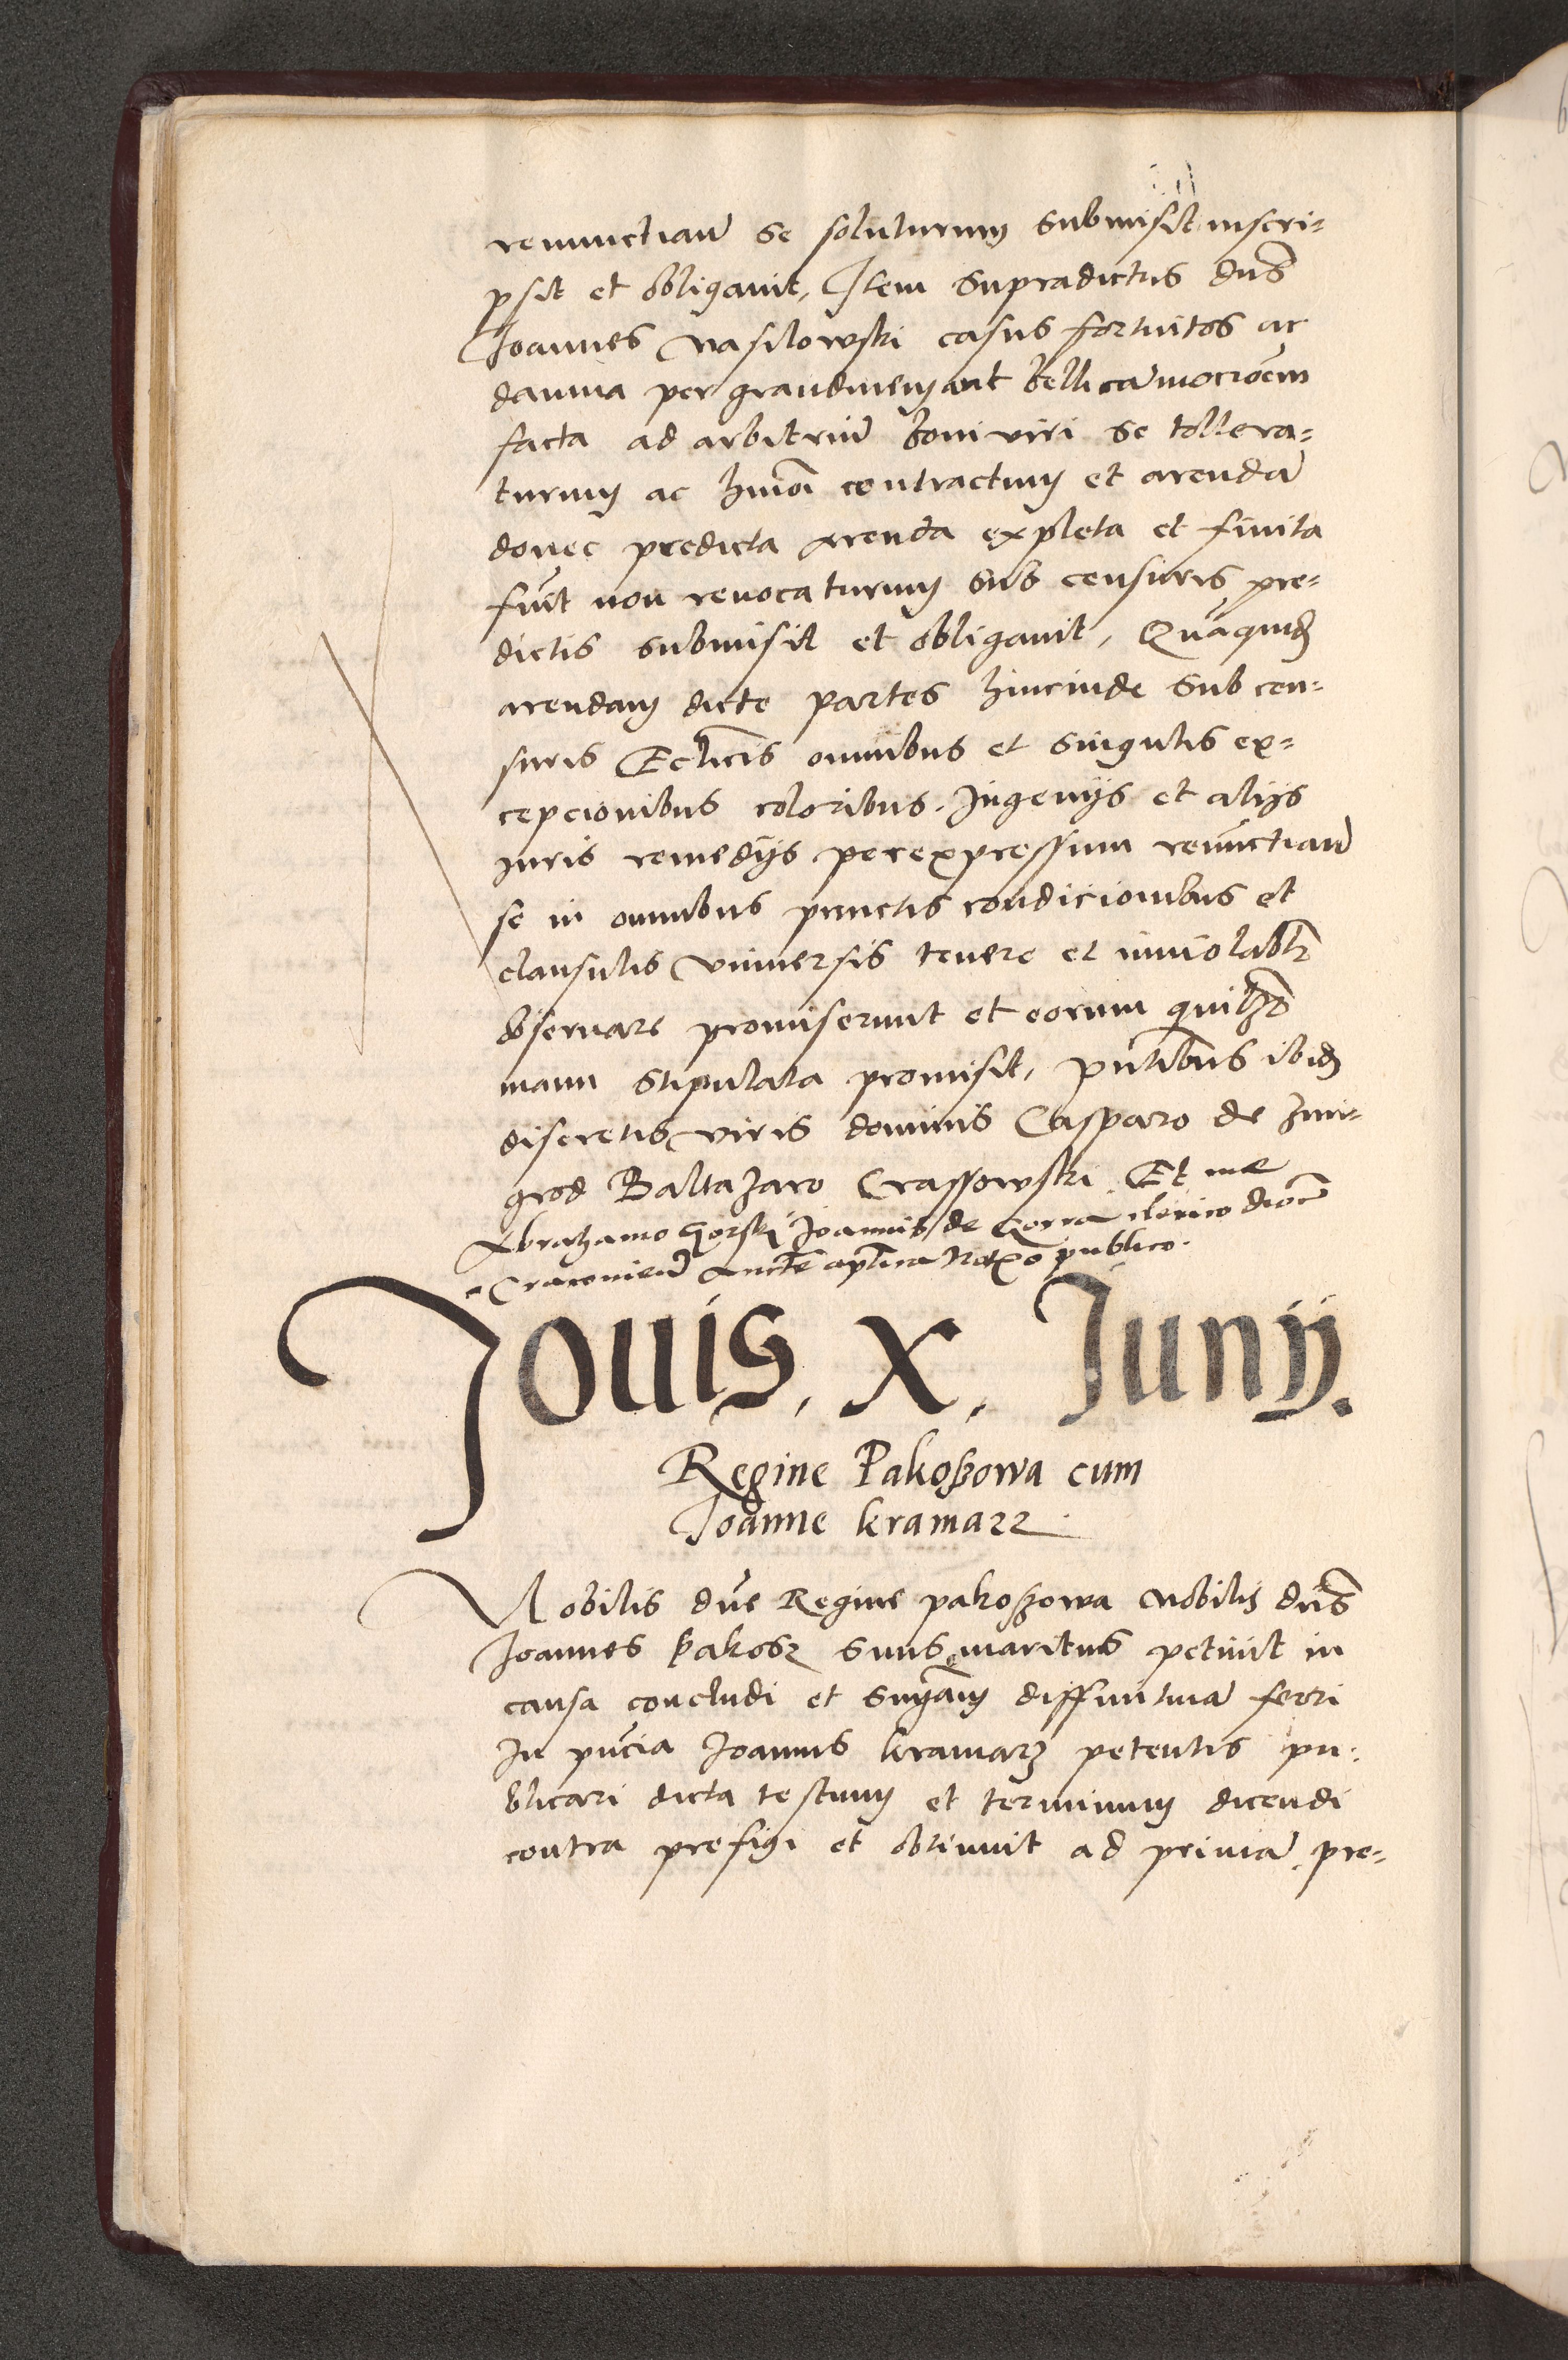 renunctian̄ se soluturum submisit inscri-
psit et obligauit, Item supradictus dn̄s
Joannes Wasilowski casus fortuitos ac
damna per grandinem aut bellica mocōem
facta ad arbitriū boni viri se tollera-
turum ac hmōi contractum et arendā
donec predicta arenda expleta et finita
fuīt non reuocaturum sub censuris pre-
dictis submisit et obligauit, Quāquid
arendam dicte partes hincinde sub cen-
suris Ecl̄icis omnibus et singulis ex-
cepcionibus coloribus. Ingenijs et alijs
iuris remedijs per expressum renūctian̄
se in omnibus punctis condicionibus et
clausulis vniuersis tenere et inuiolabl̄r
obseruare promiserunt et eorum quilibꝫ
manu stipulata promisit, pn̄tibus ibid
discretis viris dominis Casparo de Zmi-
grod Baltazaro Crassowski Et me
Abrahamo Gorski Joannis de Gorra clerico dioc̄
Cracouien̄ auct̄e apl̄ica Not̄rō publico.
Jouis, X, Junij.
Regine Pakoßowa cum
Joanne kramarz
Nobilis dn̄e Regine pakoßowa Nobilis dn̄s
Joannes Pakosz suus maritus petiuit in
causa concludi et sn̄iam diffinitiuā ferri
In pn̄cia Joannis kramarz petentis pu-
blicari dicta testium et terminum dicendi
contra prefigi et obtinuit ad primā pre-